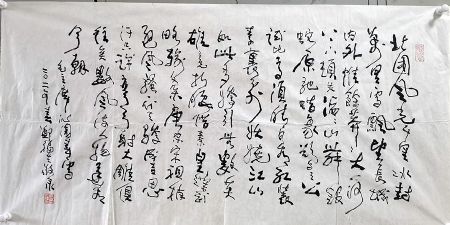 北国风光千里冰封
万里雪飘望长城
内外惟余莽莽大河
上下顿失滔滔山舞银
蛇原驰蜡象欲与天公
试比高须晴日看红装
素裹分外妖娆江山
如此多娇引无数英
雄竞折腰惜秦皇汉武
略输文采唐宗宋祖稍
逊风骚一代天骄成吉思
汗只识弯弓射大雕俱
往矣数风流人物还看
今朝
毛主席沁园春雪